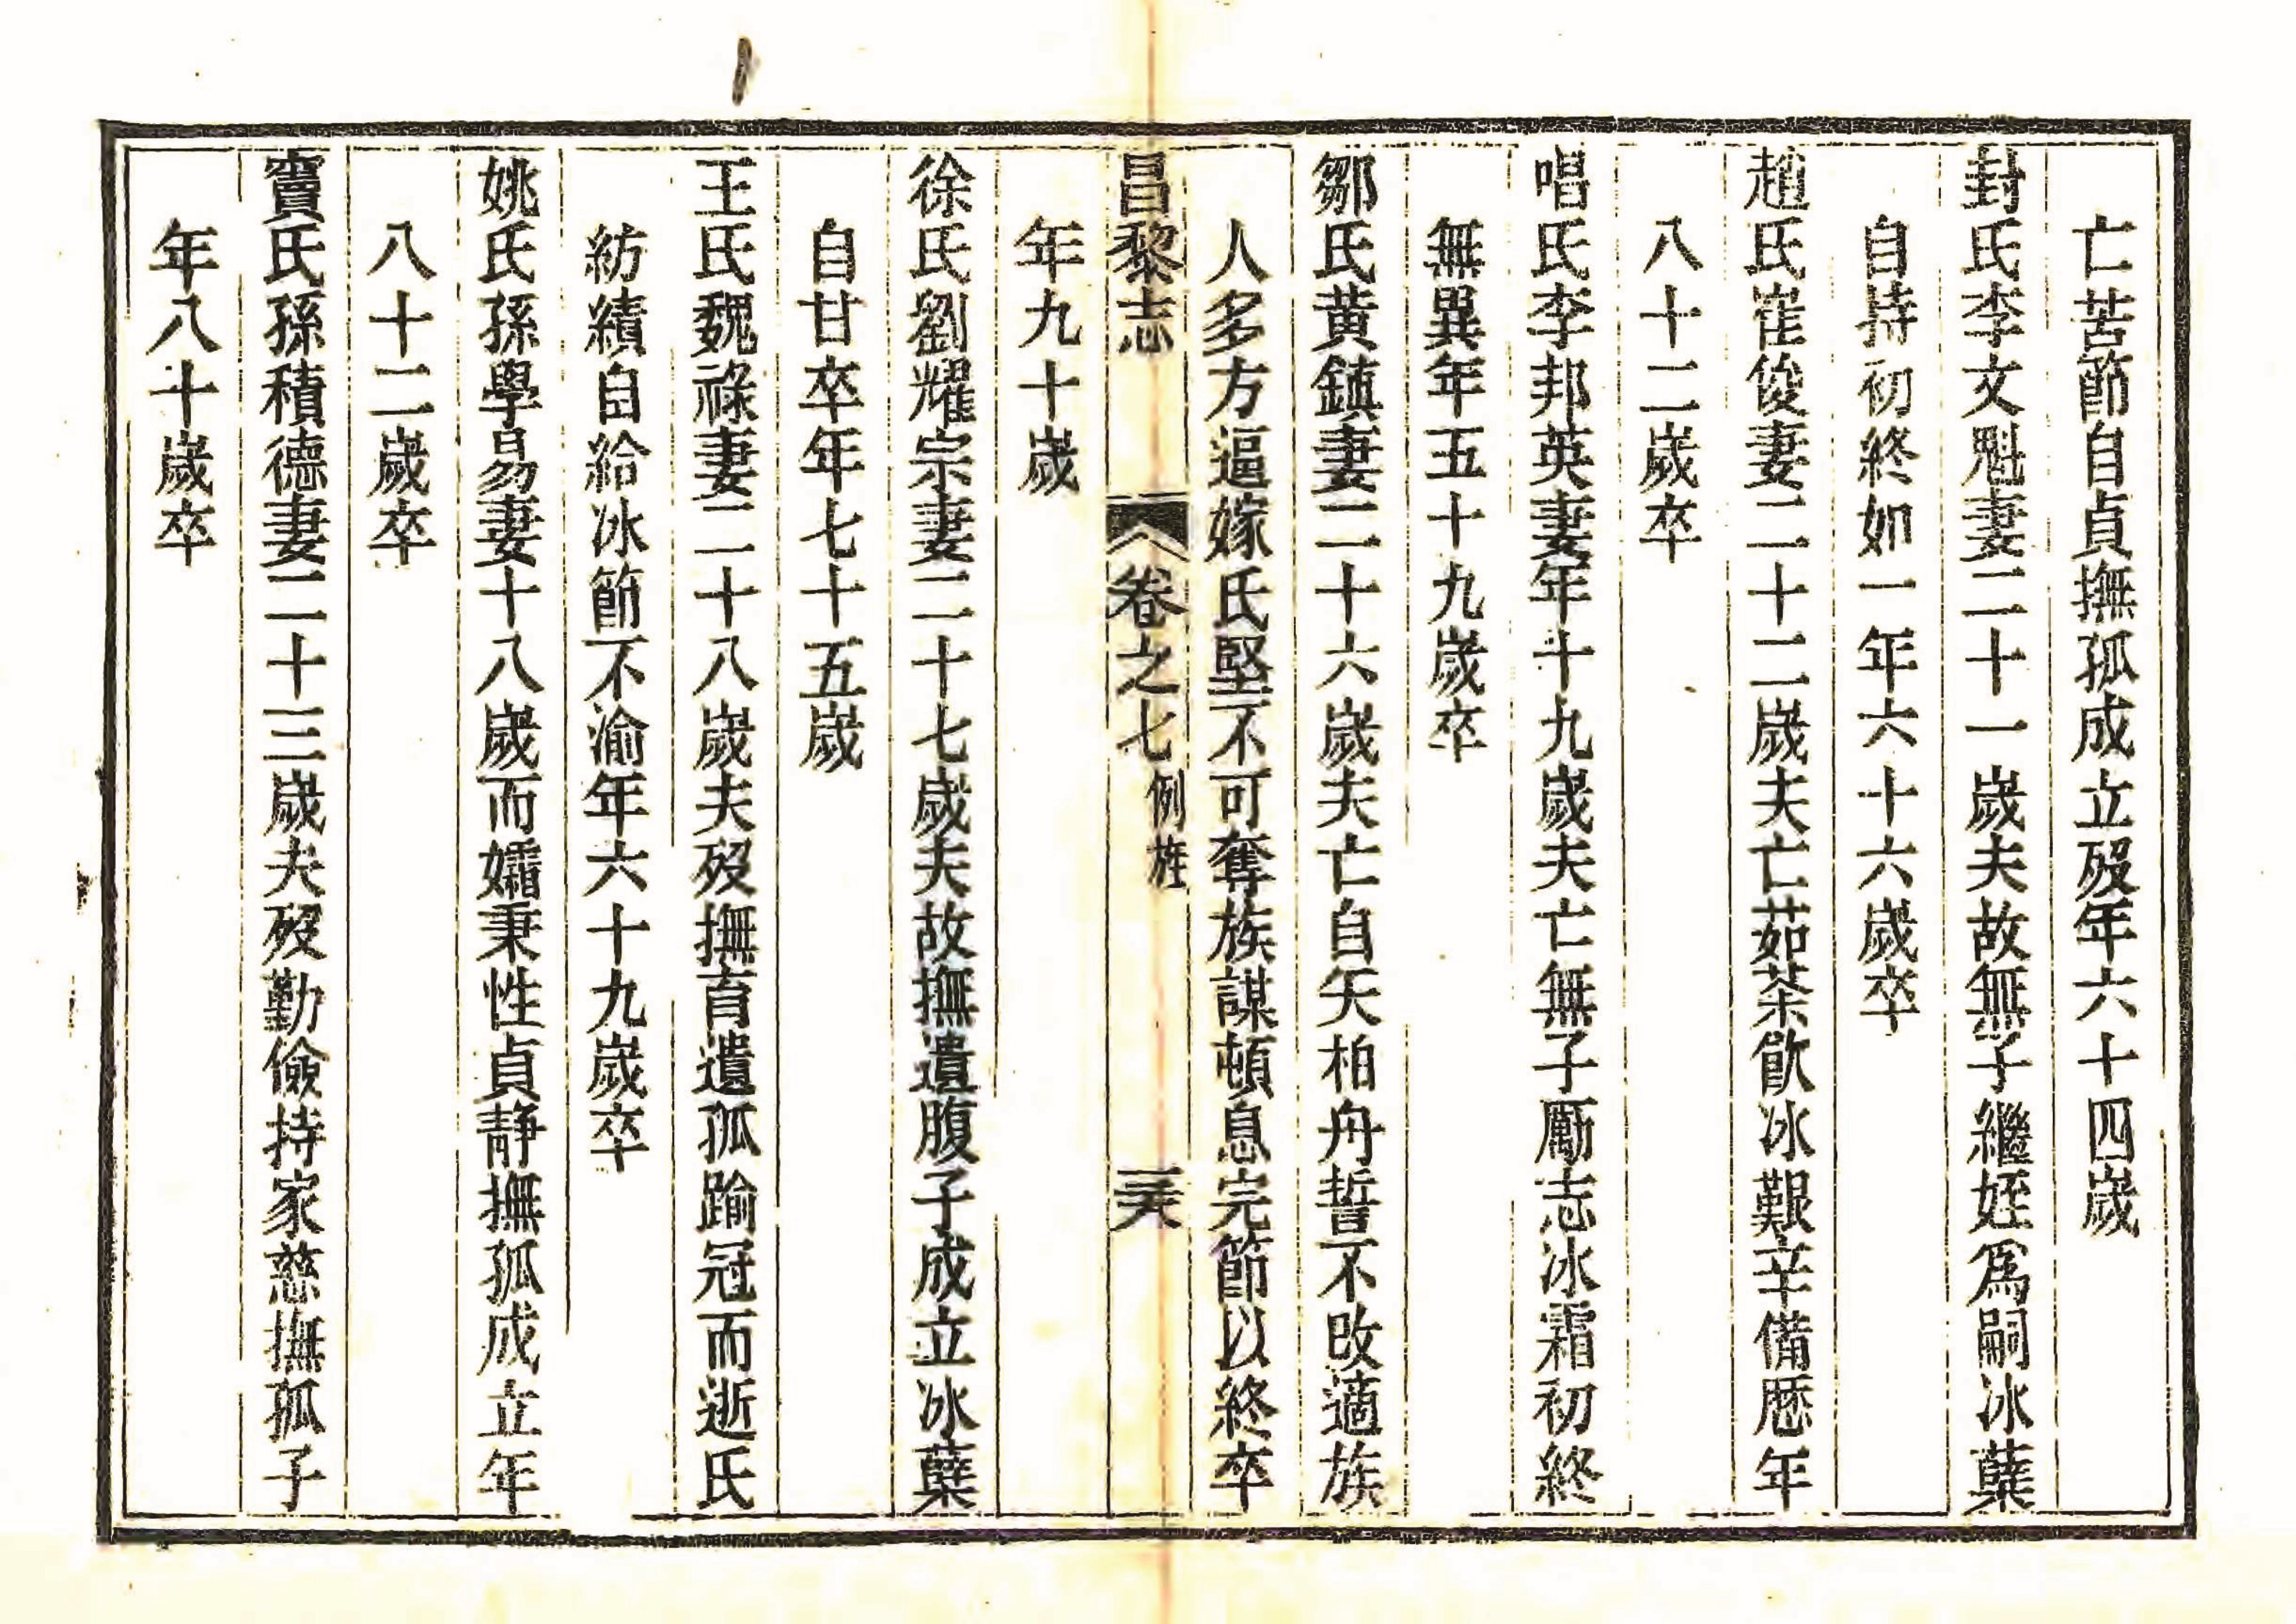 亡苦節自貞撫孤成立歿年六十四歲
封氏李文魁妻二十一歲夫故無子繼姪爲嗣冰蘖
自持初終如一年六十六歲卒
趙氏崔俊妻二十二歲夫亡茹荼飲冰艱辛備歷年
八十二歲卒
唱氏李邦英妻年十九歲夫亡無子勵志冰霜初終
無異年五十九歲卒
鄒氏黃鎮妻二十六歲夫亡自矢柏舟誓不改適族
人多方逼嫁氏堅不可奪族謀頓息完節以終卒
昌黎志 卷之七 例旌 三六
年九十歲
徐氏劉耀宗妻二十七歲夫故撫遺腹子成立冰蘖
自甘卒年七十五歲
王氏魏祿妻二十八歲夫歿撫育遺孤踰冠而逝氏
紡績自給冰節不渝年六十九歲卒
姚氏孫學易妻十八歲而孀秉性貞靜撫孤成立年
八十二歲卒
竇氏孫積德妻二十三歲夫歿勤儉持家慈撫孤子
年八十歲卒